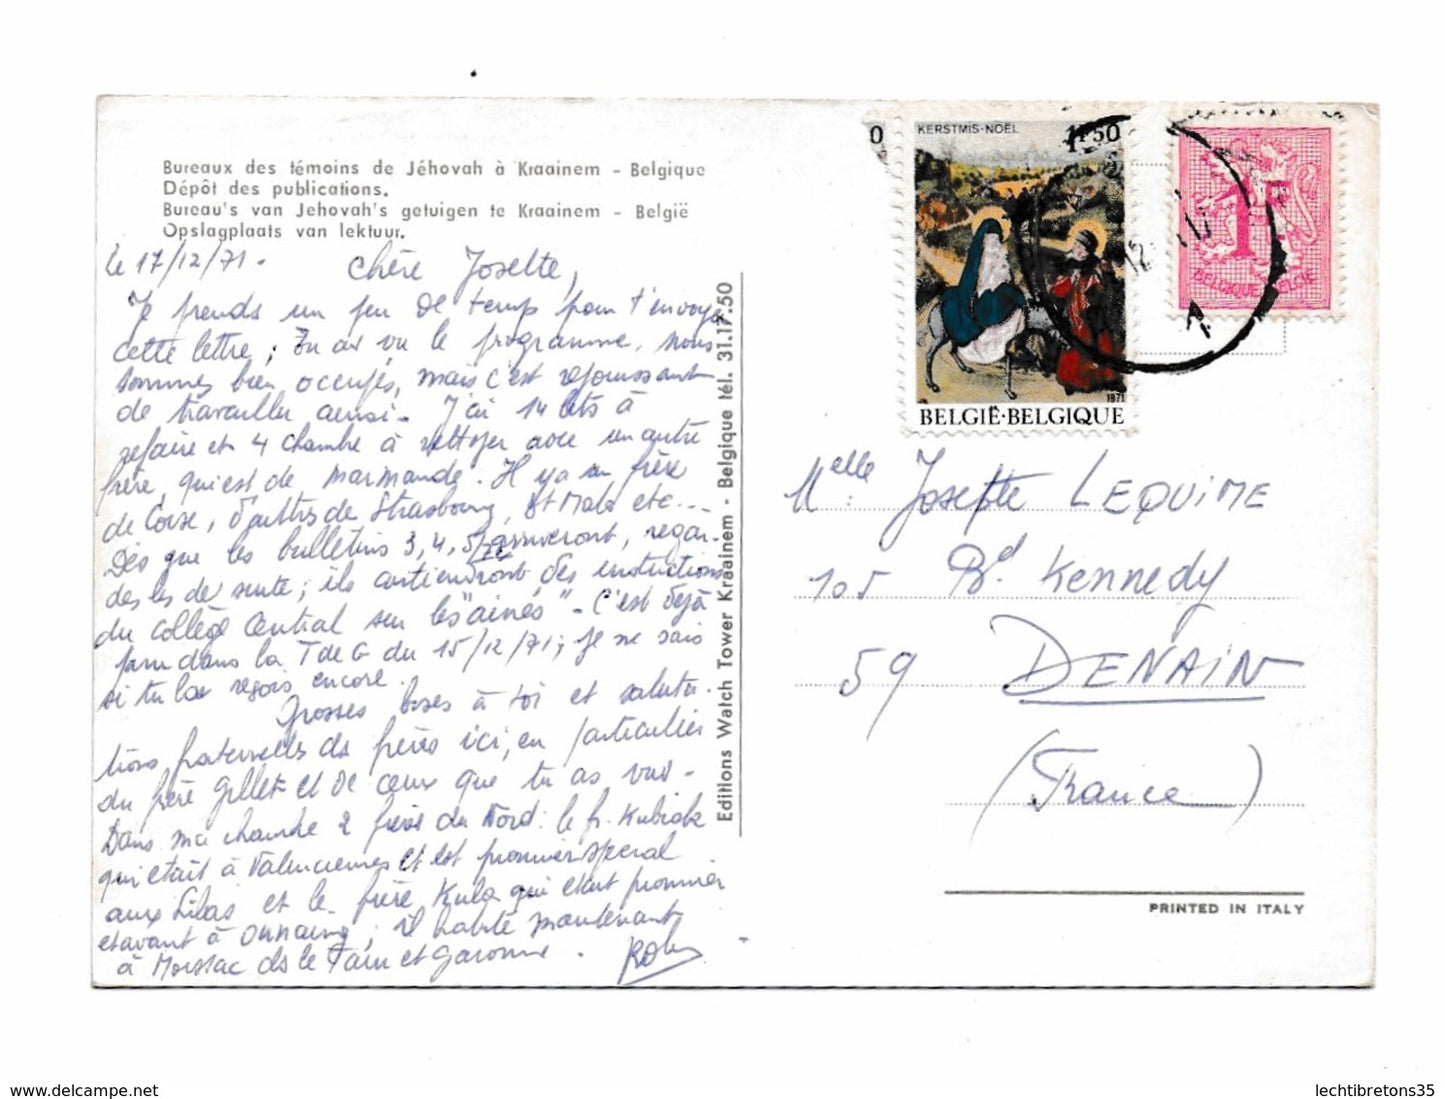 Bureaux des témoins de Jéhovah à Kraainem - Belgique
Dépôt des publications.
Bureau's van Jehovah's getuigen te Kraainem - België
Opslagplaats van lektuur.
le 17/12/71.
Chère Josette,
Je prends un peu de temps pour t'envoyer
cette lettre ; Tu as vu le programme, nous
sommes bien occupés, mais c'est réjouissant
de travailler ainsi. J'ai 14 lits à
refaire et 4 chambre à nettoyer avec un autre
frère, qui est de Marmande. Il y a un frère
de Corse, d'autres de Strasbourg, St Malo etc...
Dès que les bulletins 3, 4, 5/72 arriveront, regar-
des les de suite ; ils contiendront des instructions
du collège Central sur les "aînés". C'est déjà
paru dans la T de G du 15/12/71 ; je ne sais
si tu la reçois encore.
Grosses bises à toi et saluta-
tions fraternelles des frères ici, en particulier
du frère Gillet et de ceux que tu as vus.
Dans ma chambre 2 frères du Nord : le fr. Kubiak
qui était à Valenciennes et est pionnier spécial
aux Lilas et le frère Kula qui était pionnier
et avant à Onnaing ; il habite maintenant
à Moissac ds le Tarn et Garonne.
Editions Watch Tower Kraainem - Belgique tél. 31.17.50
0
KERSTMIS-NOËL
1F50
1971
BELGIË-BELGIQUE
1
BELGIQUE-BELGIE
12
1
Melle Josette LEQUIME
105 Bd Kennedy
59 DENAIN
(France)
PRINTED IN ITALY
www.delcampe.net
lechtibretons35